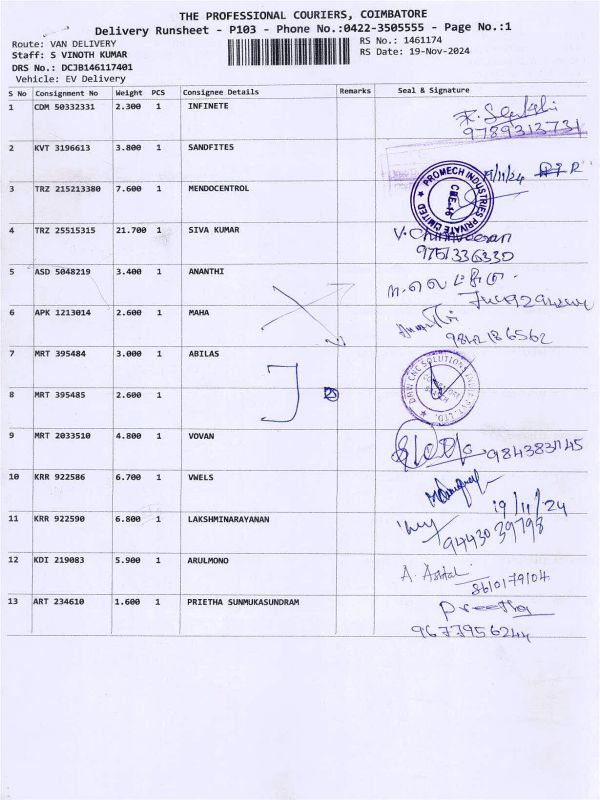 THE PROFESSIONAL COURIERS, COIMBATORE
Delivery Runsheet - P103 - Phone No.:0422-3505555 - Page No.:1
Route: VAN DELIVERY
RS No.: 1461174
Staff: S VINOTH KUMAR
RS Date: 19-Nov-2024
DRS No.: DCJB146117401
Vehicle: EV Delivery
S No Consignment No Weight PCS Consignee Details Remarks Seal & Signature
1 CDM 50332331 2.300 1 INFINETE
9789313731
2 KVT 3196613 3.800 1 SANDFITES
3 TRZ 215213380 7.600 1 MENDOCENTROL
PROMECH INDUSTRIES PRIVATE LIMITED
CBE-16
4 TRZ 25515315 21.700 1 SIVA KUMAR
9751336330
5 ASD 5048219 3.400 1 ANANTHI
6 APK 1213014 2.600 1 MAHA
9842186562
7 MRT 395484 3.000 1 ABILAS
8 MRT 395485 2.600 1
9 MRT 2033510 4.800 1 VOVAN
10 KRR 922586 6.700 1 VWELS
19/11/24
11 KRR 922590 6.800 1 LAKSHMINARAYANAN
9443039798
12 KDI 219083 5.900 1 ARULMONO
8610179104
13 ART 234610 1.600 1 PRIETHA SUNMUKASUNDRAM
Preetha
9677956244